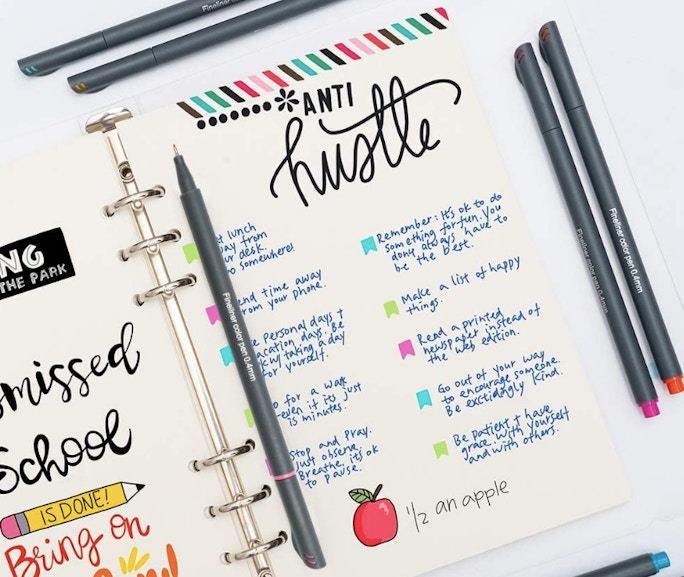 Fineliner
NG
THE PARK
missed
School
IS DONE!
Bring on
ANTI
hustle
lunch
from
desk.
somewhere!
time away
from your phone.
personal days +
days. Be
taking a day
for yourself.
for a walk
-even if its just
is minutes.
Stop and Pray.
just observe.
Breathe, it's ok
to pause.
Remember: It's ok to do
something for fun. You
dont always have to
be the best.
Make a list of happy
things.
Read a printed
newspaper instead of
the web edition.
Go out of your way
to encourage someone.
Be exctidangly kind.
Be Patient + have
grace with yourself
and with others.
1/2 an apple
Fineliner color pen 0.4mm
Fineliner color pen 0.4mm
Fineliner color pen 0.4mm